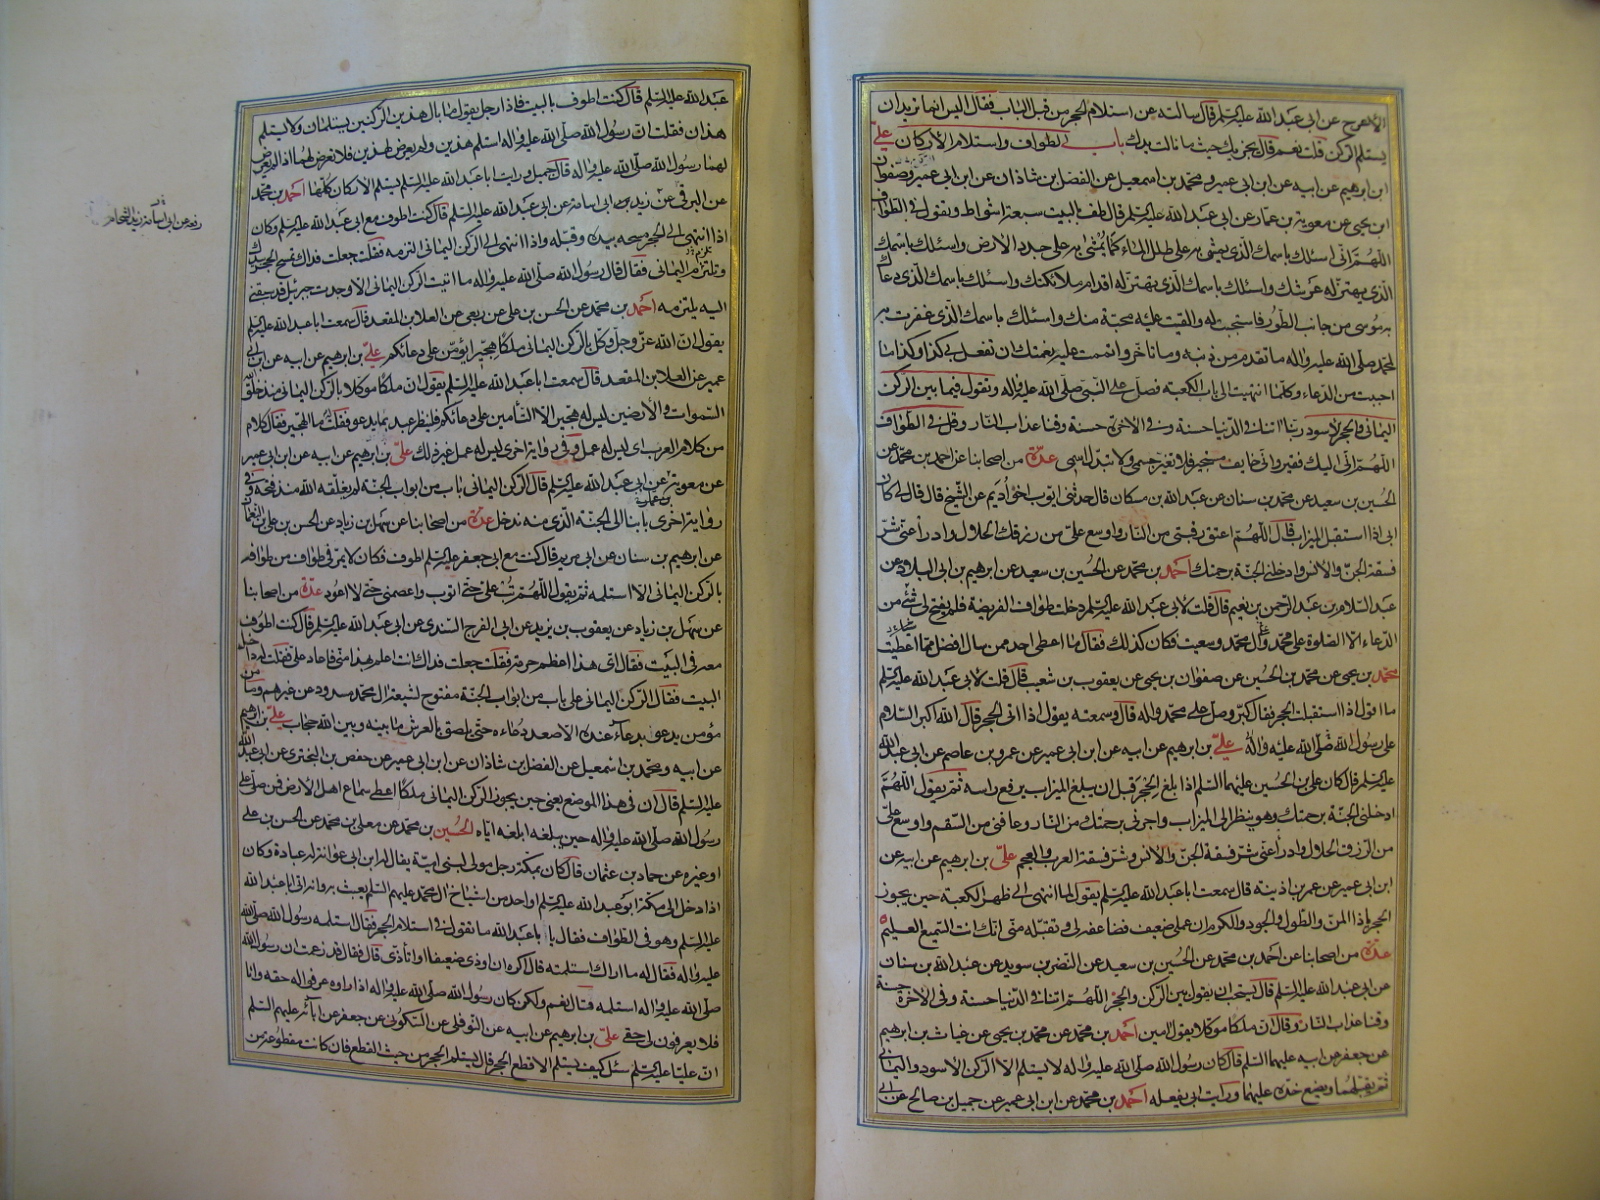 الأعرج عن ابى عبد الله عليه السلم قال سالته عن استلام الحجر من قبل الباب فقال اليس انما تريد ان
يستلم الركن قلت نعم قال يجزيك حيث ما نالت يدك باب الطواف واستلام الأركان علي
ابن ابرهيم عن ابيه عن ابن ابى عمير ومحمد بن اسمعيل عن الفضل بن شاذان عن ابن ابى عمير وصفوان
ابن يحيى عن معوية بن عمار عن ابى عبد الله عليه السلم قال طف بالبيت سبعة اشواط وتقول فى الطواف
اللهم انى اسئلك باسمك الذى يمشى به على طلل الماء كما يمشى به على جدد الأرض واسئلك باسمك
الذى يهتز له عرشك واسئلك باسمك الذى تهتز له اقدام ملائكتك واسئلك باسمك الذى دعاك
به موسى من جانب الطور فاستجبت له والقيت عليه محبة منك واسئلك باسمك الذى غفرت به
لمحمد صلى الله عليه واله ما تقدم من ذنبه وما تاخر واتممت عليه نعمتك ان تفعل بى كذا وكذا ما
احببت من الدعاء وكلما انتهيت الى باب الكعبة فصل على النبى صلى الله عليه واله وتقول فيما بين الركن
اليمانى والحجر الأسود ربنا اتنا فى الدنيا حسنة وفى الاخرة حسنة وقنا عذاب النار وقل فى الطواف
اللهم انى اليك فقير وانى خايف مستجير فلا تغير جسمى ولا تبدل اسمى عدة من اصحابنا عن احمد بن محمد عن
الحسين بن سعيد عن محمد بن سنان عن عبد الله بن مسكان قال حدثنى ايوب اخو اديم عن الشيخ قال قال لى كان
ابى اذا استقبل الميزاب قال اللهم اعتق رقبتى من النار واوسع على من رزقك الحلال وادرأ عنى شر
فسقة الجن والأنس وادخلنى الجنة برحمتك احمد بن محمد عن الحسين بن سعيد عن ابرهيم بن ابى البلاد عن
عبد السلام بن عبد الرحمن بن نعيم قال قلت لأبى عبد الله عليه السلم دخلت طواف الفريضة فلم يفتح لى شئ من
الدعاء الا الصلوة على محمد وال محمد وسعيت فكان كذلك فقال ما اعطى احد ممن سال افضل مما اعطيت
محمد بن يحيى عن محمد بن الحسين عن صفوان بن يحيى عن يعقوب بن شعيب قال قلت لأبى عبد الله عليه السلم
ما اقول اذا استقبلت الحجر فقال كبر وصل على محمد واله قال وسمعته يقول اذا اتى الحجر قال الله اكبر السلام
على رسول الله صلى الله عليه واله علي بن ابرهيم عن ابيه عن ابن ابى عمير عن عمرو بن عاصم عن ابى عبد الله
عليه السلم قال كان على بن الحسين عليهما السلم اذا بلغ الحجر قبل ان يبلغ الميزاب يرفع راسه ثم يقول اللهم
ادخلنى الجنة برحمتك وهو ينظر الى الميزاب واجرنى برحمتك من النار وعافنى من السقم واوسع على
من الرزق الحلال وادرأ عنى شر فسقة الجن والأنس وشر فسقة العرب والعجم علي بن ابرهيم عن ابيه عن
ابن ابى عمير عن عمر بن اذينه قال سمعت ابا عبد الله عليه السلم يقول لما انتهى الى ظهر الكعبة حين يجوز
الحجر يا ذا المن والطول والجود والكرم ان عملى ضعيف فضاعفه لى وتقبله منى انك انت السميع العليم
عدة من اصحابنا عن احمد بن محمد عن الحسين بن سعيد عن النضر بن سويد عن عبد الله بن سنان
عن ابى عبد الله عليه السلم قال يستحب ان يقول بين الركن والحجر اللهم اتنا فى الدنيا حسنة وفى الآخرة حسنة
وقنا عذاب النار وقال ان ملكا موكلا يقول امين احمد بن محمد عن محمد بن يحيى عن غياث بن ابرهيم
عن جعفر عن ابيه عليهما السلم قال كان رسول الله صلى الله عليه واله لا يستلم الا الركن الأسود واليمانى
ثم يقبلهما ويضع خده عليهما ورايت ابى يفعله احمد بن محمد عن ابن ابى عمير عن جميل بن صالح عن ابى
عبد الله عليه السلم قال كنت اطوف بالبيت فاذا رجل يقول ما بال هذين الركنين يستلمان ولا يستلم
هذان فقلت ان رسول الله صلى الله عليه واله استلم هذين ولم يعرض لهذين فلا تعرض لهما اذ لم يعرض
لهما رسول الله صلى الله عليه واله قال جميل ورايت ابا عبد الله عليه السلم يستلم الأركان كلها احمد بن محمد
عن البرقى عن زيد بن ابى اسامة عن ابى عبد الله عليه السلم قال كنت اطوف مع ابى عبد الله عليه السلم وكان
رفعه عن ابى اسامة زيد الشحام
اذا انتهى الى الحجر مسحه بيده وقبله واذا انتهى الى الركن اليمانى التزمه فقلت جعلت فداك تمسح الحجر بيدك
وتلتزم اليمانى فقال قال رسول الله صلى الله عليه واله ما اتيت الركن اليمانى الا وجدت جبرئيل قد سبقنى
اليه يلتزمه احمد بن محمد عن الحسن بن على عن ربعى عن العلا بن المقعد قال سمعت ابا عبد الله عليه السلم
يقول ان الله عز وجل وكل بالركن اليمانى ملكا هجيرا يؤمن على دعائكم علي بن ابرهيم عن ابيه عن ابن ابى
عمير عن العلا بن المقعد قال سمعت ابا عبد الله عليه السلم يقول ان ملكا موكلا بالركن اليمانى منذ خلق الله
السموات والأرضين ليس له هجير الا التأمين على دعائكم فلينظر عبد بما يدعو فقلت له ما الهجير فقال كلام
من كلام العرب اى ليس له عمل وفى رواية اخرى ليس له عمل غير ذلك علي بن ابرهيم عن ابيه عن ابن ابى عمير
عن معوية بن عمار عن ابى عبد الله عليه السلم قال الركن اليمانى باب من ابواب الجنة لم يغلقه الله منذ فتحه وفى
رواية اخرى بابنا الى الجنة الذى منه ندخل عدة من اصحابنا عن سهل بن زياد عن الحسن بن على بن النعمان
عن ابرهيم بن سنان عن ابى مريم قال كنت مع ابى جعفر عليه السلم اطوف فكان لا يمر فى طواف من طوافه
بالركن اليمانى الا استلمه ثم يقول اللهم تب على حتى اتوب واعصمنى حتى لا اعود عدة من اصحابنا
عن سهل بن زياد عن يعقوب بن يزيد عن ابى الفرج السندى عن ابى عبد الله عليه السلم قال كنت اطوف
معه فى البيت فقال اى هذا اعظم حرمة فقلت جعلت فداك انت اعلم بهذا منى فاعاد على فقلت له داخل
البيت فقال الركن اليمانى على باب من ابواب الجنة مفتوح لشيعة ال محمد مسدود عن غيرهم وما من
مؤمن يدعو بدعاء عنده الا صعد دعاءه حتى يلصق بالعرش ما بينه وبين الله حجاب علي بن ابرهيم
عن ابيه ومحمد بن اسمعيل عن الفضل بن شاذان عن ابن ابى عمير عن حفص بن البخترى عن ابى عبد الله
عليه السلم قال ان فى هذا الموضع يعنى حين يجوز الركن اليمانى ملكا اعطى سماع اهل الأرض فمن صلى على
رسول الله صلى الله عليه واله حين يبلغه ابلغه اياه الحسين بن محمد عن معلى بن محمد عن الحسن بن على
او غيره عن حماد بن عثمان قال كان بمكة رجل مولى لبنى امية يقال له ابن ابى عوانة له عبادة وكان
اذا دخل الى مكة ابو عبد الله عليه السلم او احد من اشياخ ال محمد عليهم السلم يعبث به وانه اتى ابا عبد الله
عليه السلم وهو فى الطواف فقال يا ابا عبد الله ما تقول فى استلام الحجر فقال استلمه رسول الله صلى الله
عليه واله فقال له ما اراك استلمته قال اكره ان اوذى ضعيفا او اتأذى قال فقال قد زعمت ان رسول الله
صلى الله عليه واله استلمه قال نعم ولكن كان رسول الله صلى الله عليه واله اذا راوه عرفوا له حقه وانا
فلا يعرفون لى حقى علي بن ابرهيم عن ابيه عن النوفلى عن السكونى عن جعفر عن آبائه عليهم السلم
ان عليا عليه السلم سئل كيف يستلم الأقطع الحجر قال يستلم الحجر من حيث القطع فان كانت مقطوعة من